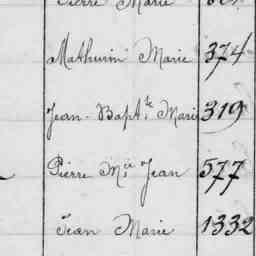 Pierre Marie
Mathurin Marie 374
Jean-Bapt.te Marie 319
Pierre M.ie Jean 577
Jean Marie 1332